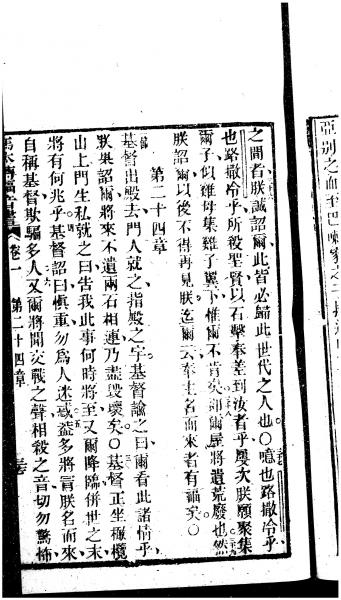 亞別之血至巴
之間者朕誠詔爾此皆必歸此世代之人也〇噫也路撒冷乎
也路撒冷乎所殺聖賢以石擊奉差到汝者乎屢次朕願聚集
爾子似雌母集雞子翼下惟爾不肯矣卽爾屋將遺荒廢也然
朕詔爾以後不得再見朕迄爾云奉主名而來者有福矣〇
第二十四章
基督出殿去門人就之指殿之宇基督諭之曰爾看此諸情乎
朕果詔爾將來不遺兩石相連乃盡毀壞矣〇基督正坐橄欖
山上門生私就之曰告我此事何時將至又爾降臨併世之末
將有何兆乎基督詔曰愼重勿爲人迷惑蓋多將冒朕名而來
自稱基督欺騙多人又爾將聞交戰之聲相殺之音切勿驚怖
馬太傳福音書 卷一 第二十四章